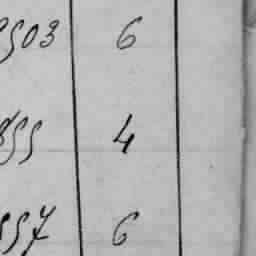 503 6
855 4
557 6